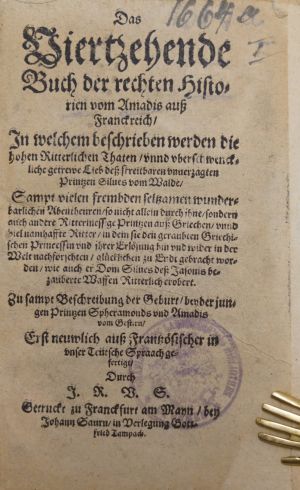 Das
1664 a
I
Viertzehende
Buch der rechten Histo-
rien vom Amadis auß
Franckreich/
In welchem beschrieben werden die
hohen Ritterlichen Thaten/ vnnd
getrewe Lieb deß streitbaren vnuerzagten
Printzen Silues vom Walde/
Sampt vielen frembden seltzamen wunder-
barlichen Abentheuren/ so nicht allein durch ihne/ sondern
auch andere Printzen auß Griechen/ vnnd
viel namhaffte Ritter/ in dem sie den geraubten Griechi-
schen Princessin vnd ihrer Erlösung hin vnd wider in der
Welt nachforschten/ glücklichen zu Endt gebracht wor-
den/ wie auch er Dom Silues deß Jasonis be-
zauberte Waffen Ritterlich erobert.
Zu sampt Beschreibung der Geburt/ beyder jun-
gen Printzen Spheramonds vnd Amadis
vom Gestirn/
Erst neuwlich auß Frantzösischer in
vnser Teutsche Spraach ge-
fertigt/
Durch
J. R. V. S.
Getruckt zu Franckfurt am Mayn/ bey
Johann Saurn/ in Verlegung Gott-
fried Tampach.